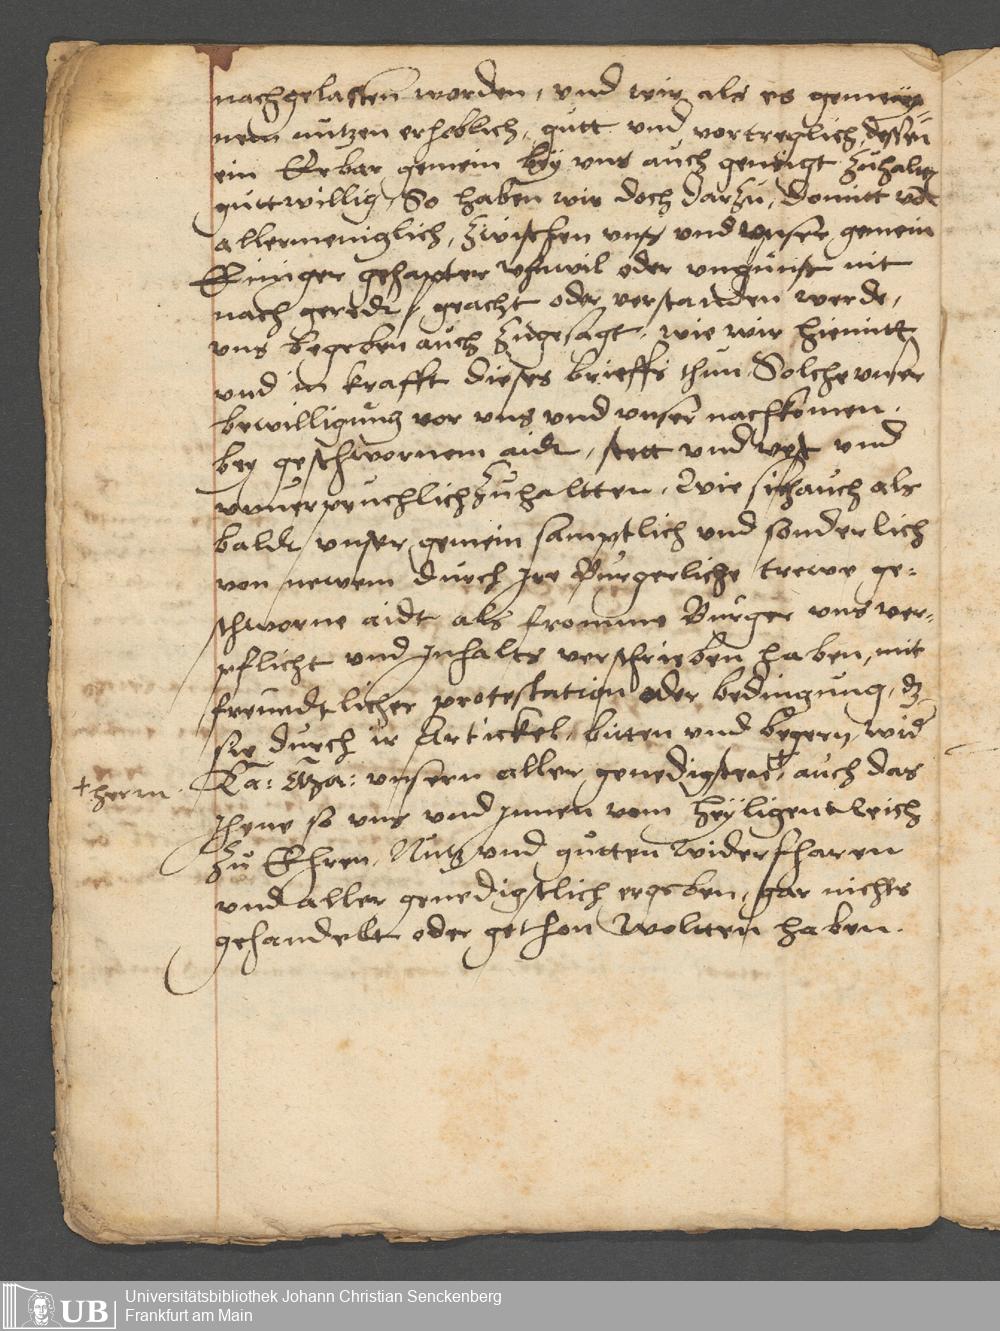 nachgelassen worden, vnd wir als es gemey¬
nem nutzen erheblich, gutt vnd vortreglich, dessen
ein Erbar gemein bey vns auch geneigt zuhalten
guttwillig, So haben wir doch darzu, domitt von
allermeniglich, zwischen vnß vnd vnser gemein
Einiger gehapter vnwil oder vngunst nit
nach geredt, geacht oder verstanden werde,
vns begeben auch zugesagt, wie wir hiemitt
vnd in krafft dieses brieffs thun Solche vnser
bewilligung vor vns vnd vnser nachkomen.
bey geschwornem aidt, stett vnd vest vnd
vnuerpruchlich zuhaltten, Wie sich auch als
baldt vnser gemein samptlich vnd sonderlich
von newem durch Jre Burgerliche trewe ge¬
schworne aidt als fromme Burger vns ver¬
pflicht vnd Jnhalts verschrieben haben, mit
freundtlicher protestation oder bedingung, dz
sie durch ir Artickel, bitten vnd begern, wid
Ka: Ma: vnsern aller genedigsten +, auch das
+ herrn.
Jhene so vns vnd Jnnen vom heyligen Reich
zu Ehren, Nutz vnd gutten widerfharen
vnd aller genedigstlich ergeben, gar nichts
gehandelt oder gethon woltten haben.
Universitätsbibliothek Johann Christian Senckenberg
Frankfurt am Main
UB